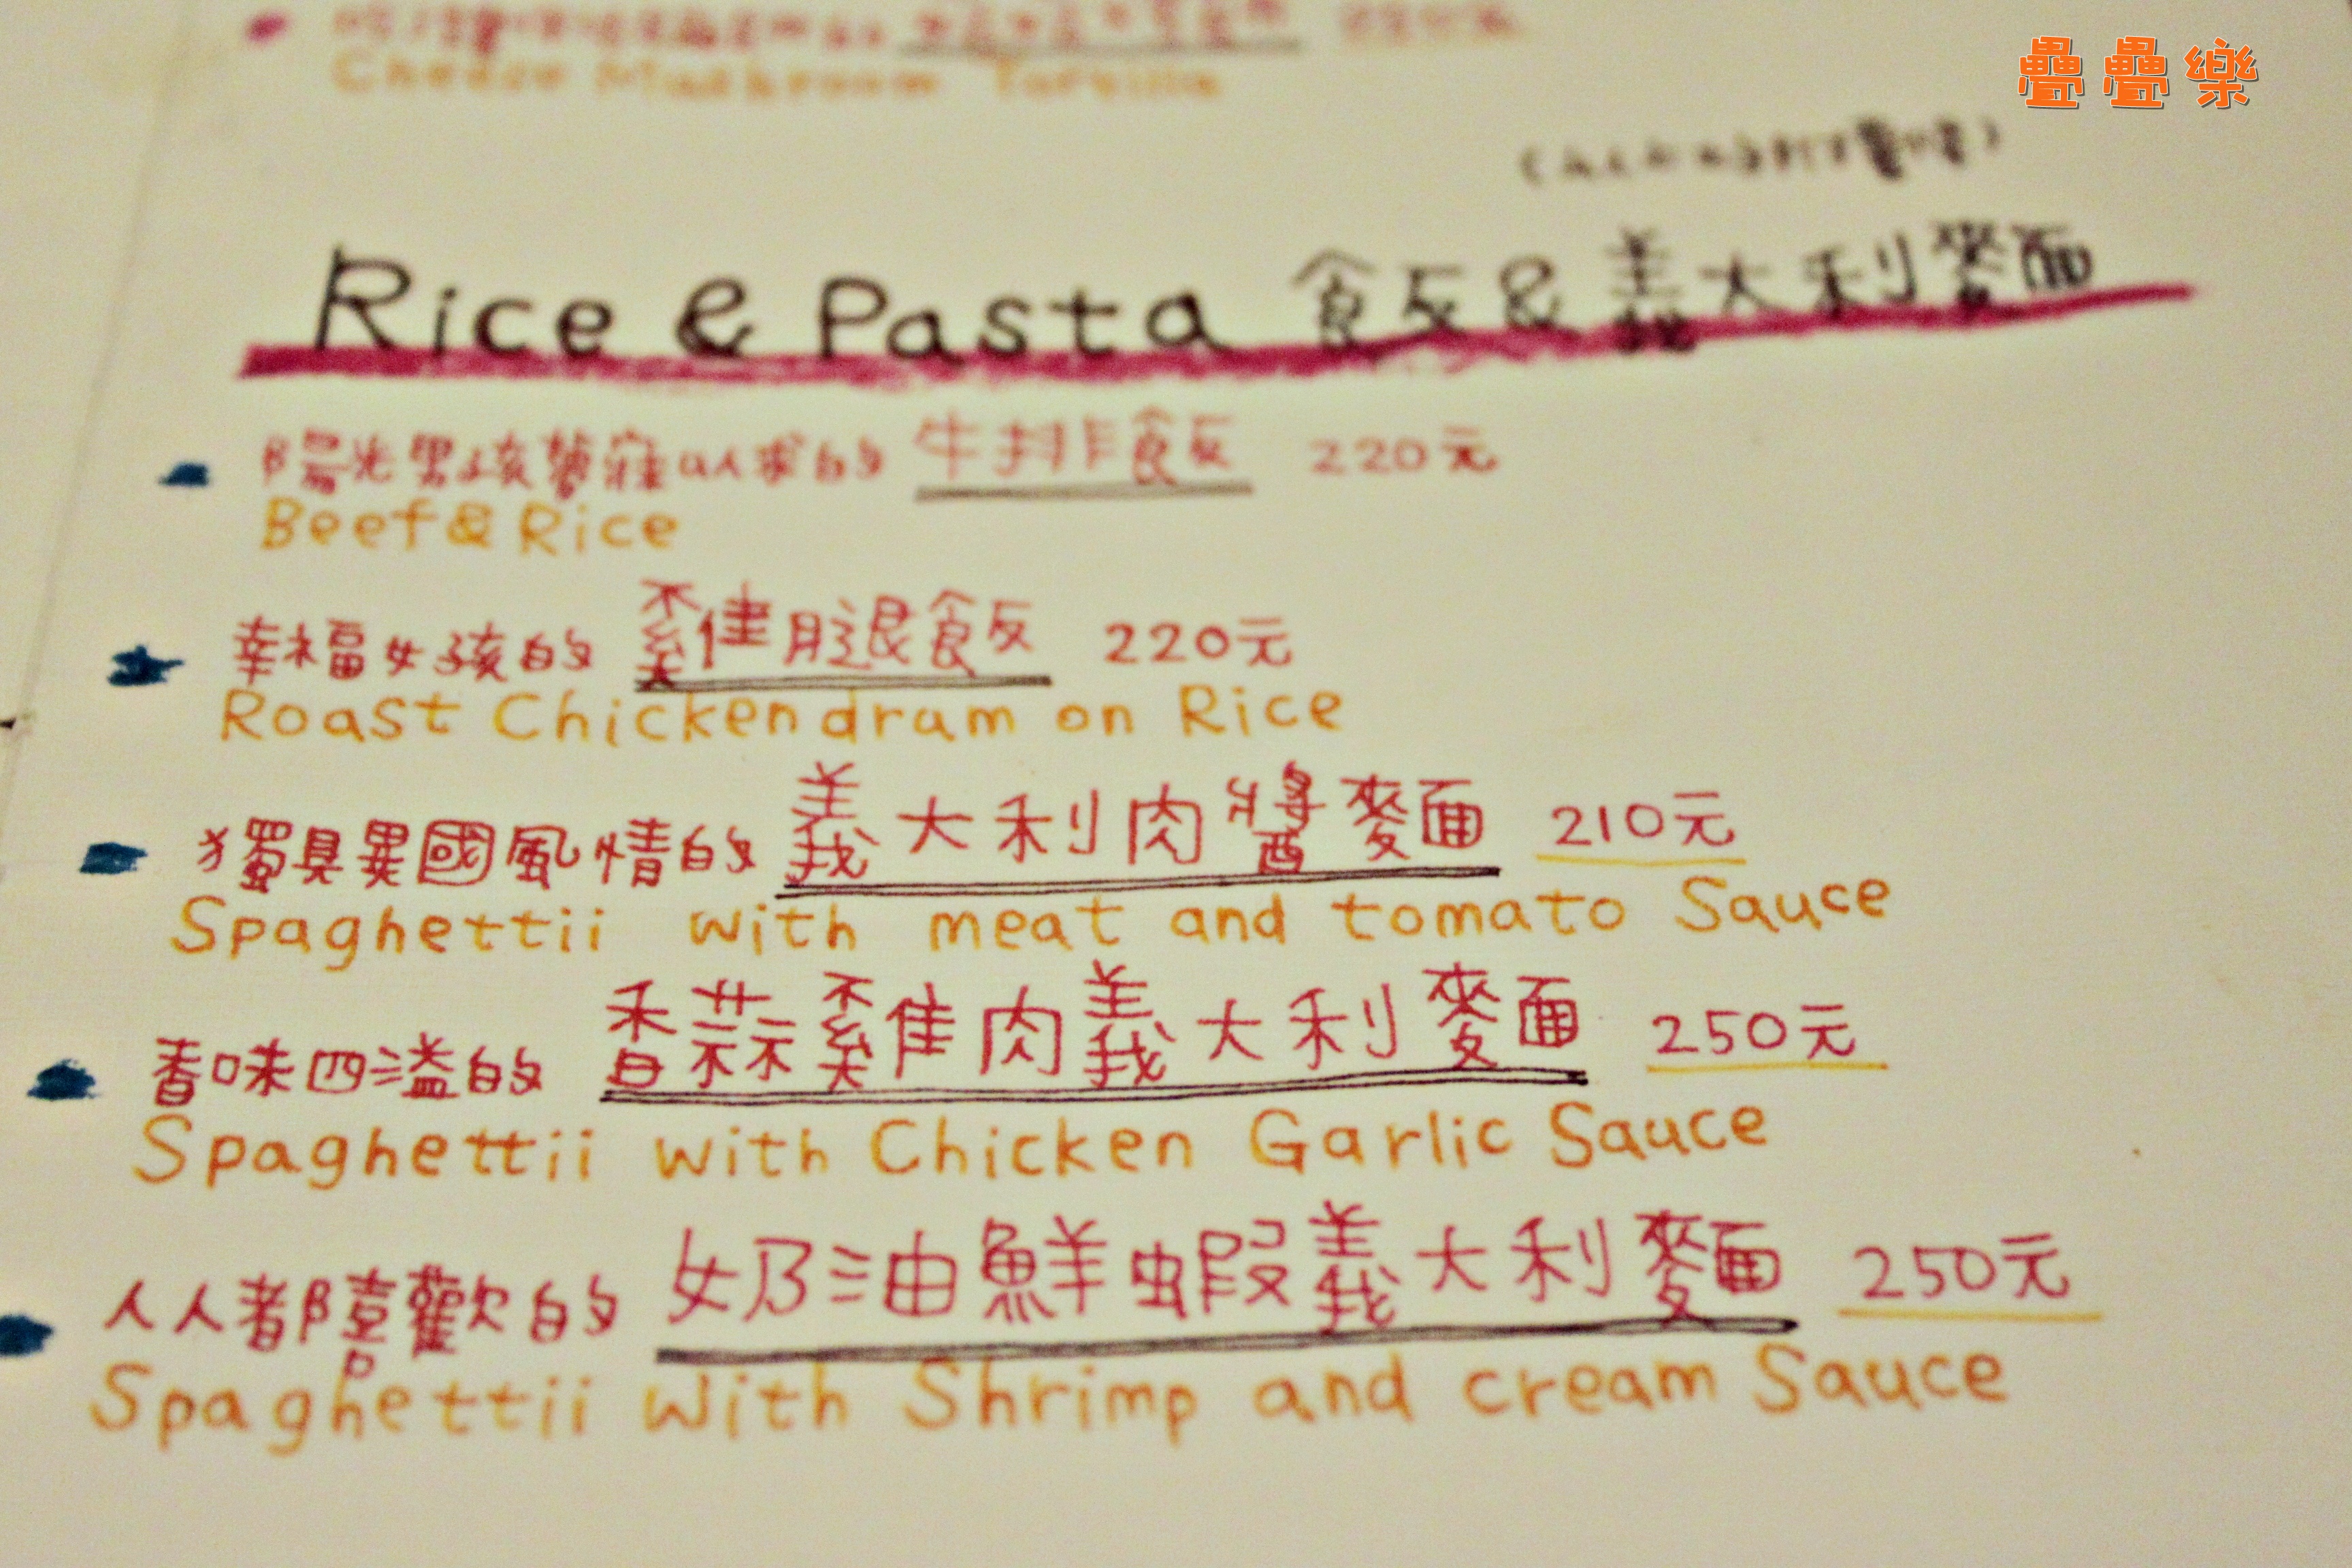 疊疊樂
Cheese Mushroom Tortilla
Rice & Pasta 飯&義大利麵
陽光男孩夢寐以求的 牛排飯 220元
Beef & Rice
幸福女孩的 雞腿飯 220元
Roast Chicken dram on Rice
獨具異國風情的 義大利肉醬麵 210元
Spaghettii with meat and tomato Sauce
香味四溢的 香蒜雞肉義大利麵 250元
Spaghettii with Chicken Garlic Sauce
人人都喜歡的 奶油鮮蝦義大利麵 250元
Spaghettii with Shrimp and cream Sauce